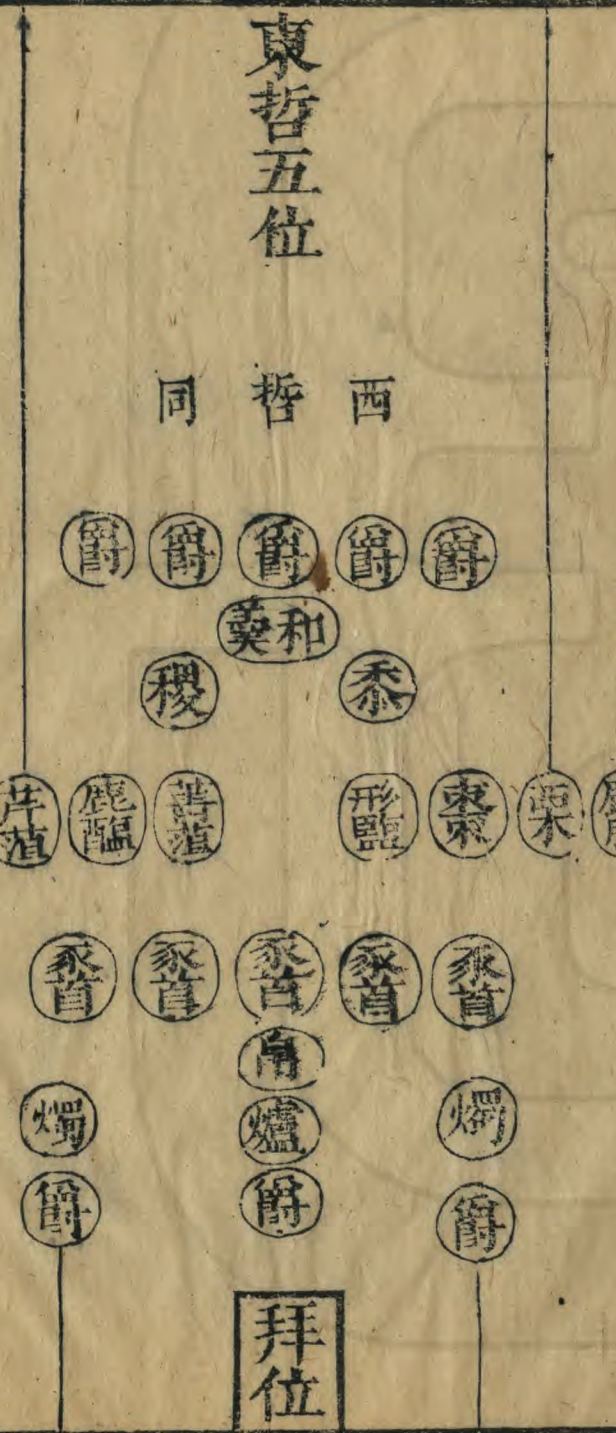 東哲五位
西哲同
爵 爵 爵 爵 爵
和羹
黍 稷
栗 棗 形鹽 菁菹 鹿醢 芹菹
豕首 豕首 豕首 豕首 豕首
帛
燭 爐 燭
爵 爵 爵
拜位